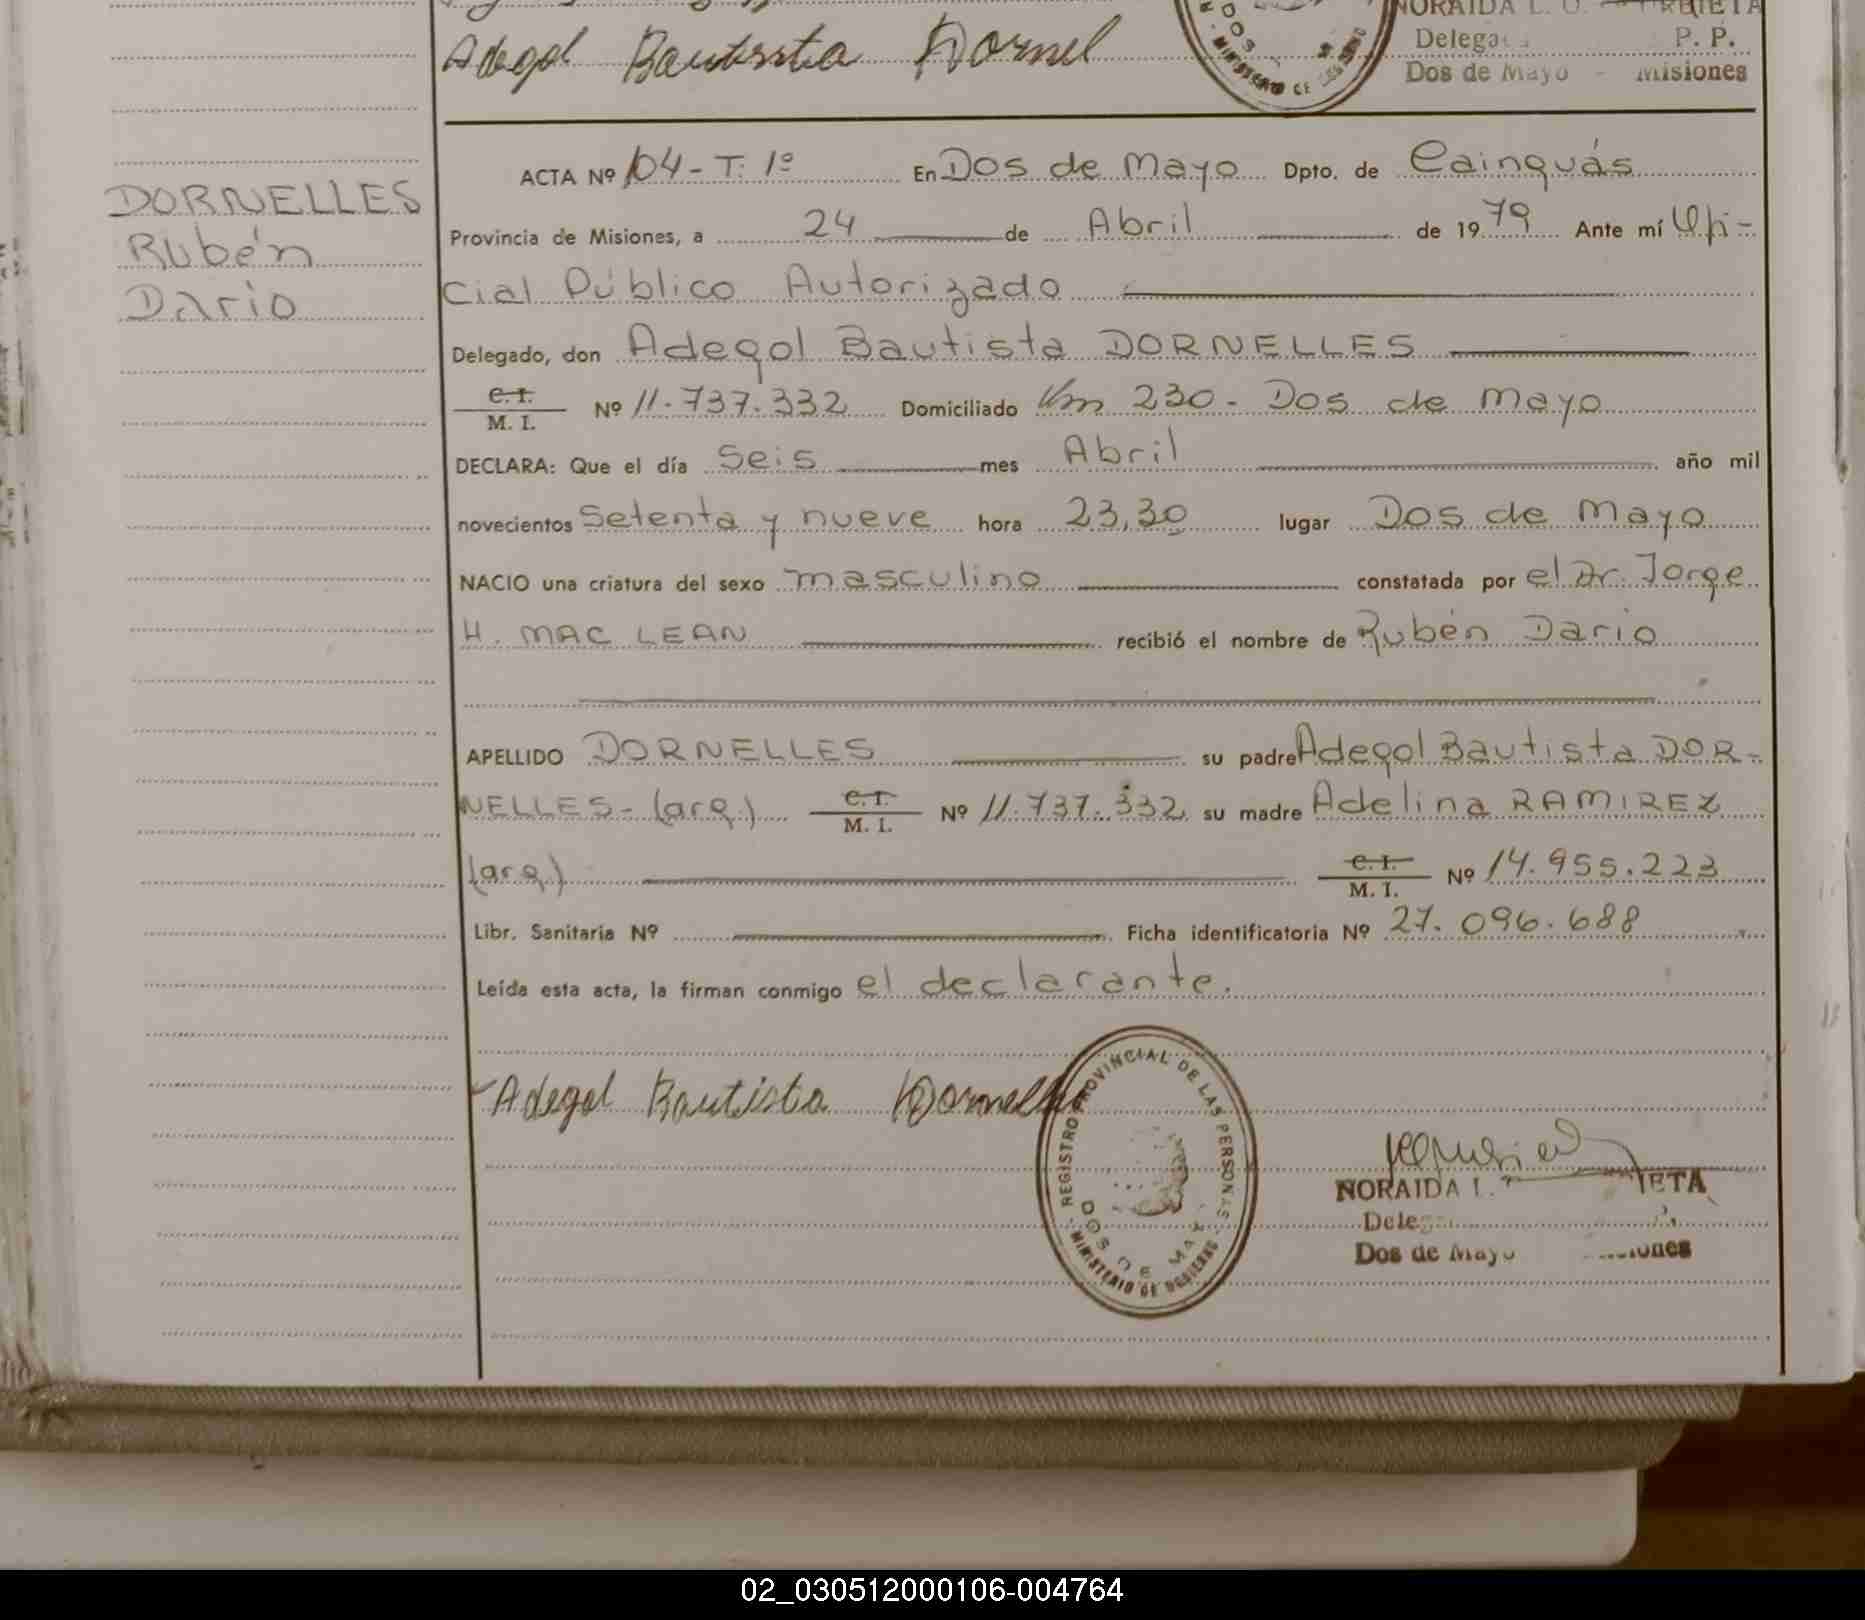 Adegol Bautista Dornel
NORAIDA L.
Delega P. P.
Dos de Mayo - Misiones
DORNELLES
Rubén
Dario
ACTA Nº 104-T. 1º En Dos de Mayo Dpto. de Cainguás
Provincia de Misiones, a 24 de Abril de 1979 Ante mí Ofi-
cial Público Autorizado
Delegado, don Adegol Bautista DORNELLES
C. I.
M. I. Nº 11.737.332 Domiciliado Km 230 - Dos de Mayo
DECLARA: Que el día Seis mes Abril año mil
novecientos Setenta y nueve hora 23,30 lugar Dos de Mayo
NACIO una criatura del sexo masculino constatada por el Dr. Jorge
H. MAC LEAN recibió el nombre de Rubén Dario
APELLIDO DORNELLES su padre Adegol Bautista DOR-
NELLES - (arg.) C. I. M. I. Nº 11.737.332 su madre Adelina RAMIREZ
(arg.) C. I. M. I. Nº 14.955.223
Libr. Sanitaria Nº Ficha identificatoria Nº 27.096.688
Leída esta acta, la firman conmigo el declarante.
Adegol Bautista Dornelles
REGISTRO PROVINCIAL DE LAS PERSONAS
DOS DE MAYO
MINISTERIO DE GOBIERNO
NORAIDA L. IETA
Deleg
Dos de Mayo iones
02_030512000106-004764